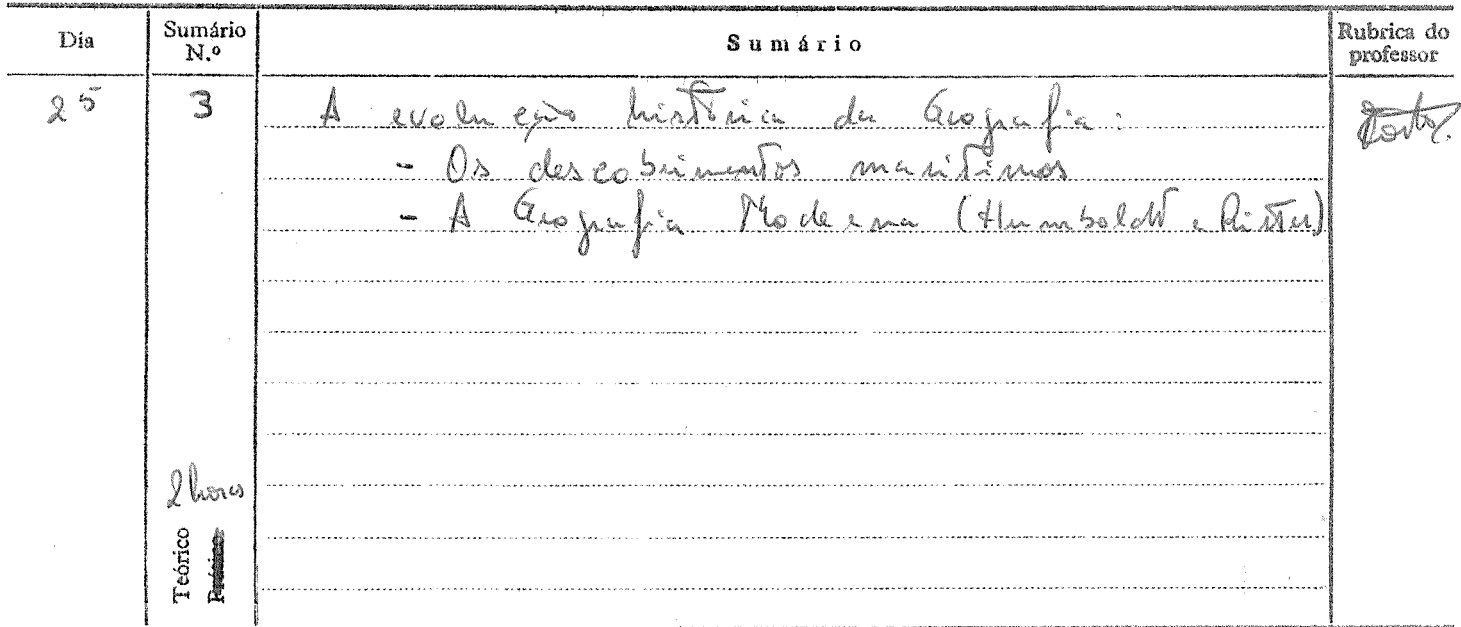 Dia
Sumário N.º
Sumário
Rubrica do professor
25
3
A evolução histórica da Geografia:
- Os descobrimentos marítimos
- A Geografia Moderna (Humboldt e Ritter)
2 horas
Teórico
Prático